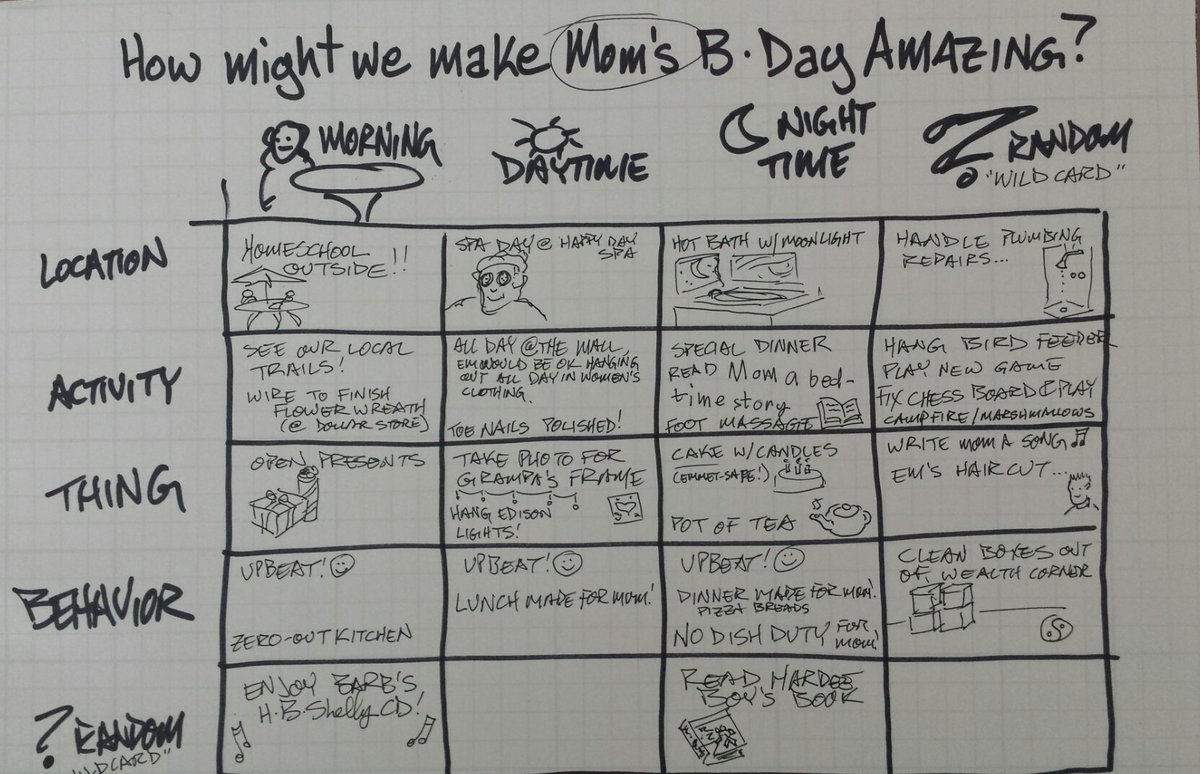 How might we make Mom's B·Day AMAZING?
MORNING
DAYTIME
NIGHT
TIME
? RANDOM
"WILD CARD"
LOCATION
HOMESCHOOL
OUTSIDE!!
SPA DAY @ HAPPY DAY
SPA
HOT BATH W/MOONLIGHT
HANDLE PLUMBING
REPAIRS...
ACTIVITY
SEE OUR LOCAL
TRAILS!
WIRE TO FINISH
FLOWER WREATH
(@ DOLLAR STORE)
ALL DAY @ THE MALL,
EM WOULD BE OK HANGING
OUT ALL DAY IN WOMEN'S
CLOTHING.
TOE NAILS POLISHED!
SPECIAL DINNER
READ Mom a bed-
time story
FOOT MASSAGE
HANG BIRD FEEDER
PLAY NEW GAME
FIX CHESS BOARD & PLAY
CAMPFIRE/MARSHMALLOWS
THING
OPEN PRESENTS
TAKE PHOTO FOR
GRAMPA'S FRAME
HANG EDISON
LIGHTS!
CAKE W/CANDLES
(EMMET-SAFE!)
POT OF TEA
WRITE MOM A SONG
EM'S HAIRCUT...
BEHAVIOR
UPBEAT!
ZERO-OUT KITCHEN
UPBEAT!
LUNCH MADE FOR MOM!
UPBEAT!
DINNER MADE FOR MOM!
PIZZA BREADS
NO DISH DUTY FOR
MOM!
CLEAN BOXES OUT
OF WEALTH CORNER
? RANDOM
"WILDCARD"
ENJOY BARB'S
H·B·Shelly CD!
READ HARDEE
BOY'S BOOK